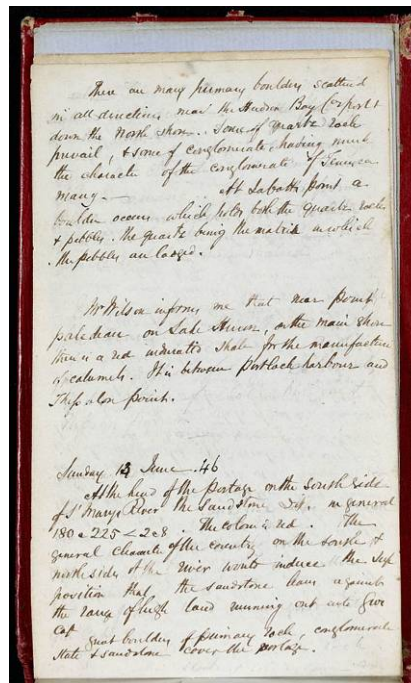 There are many primary boulders scattered
in all directions near the Hudson Bay Co's post &
down the North shore. Some of quartz rock
prevail, & some of conglomerate having much
the character of the conglomerate of
many. At Labatts point a
boulder occurs which holds both the quartz rocks
& pebbles. The quartz being the matrix in which
the pebbles are lodged.
Mr Wilson informs me that near point
on Lake Huron, on the main shore
there is a red indurated shale for the manufacture
of calumets. It is between Portlock harbour and
Thessalon point.
Sunday 13 June 46
At the head of the Portage on the south side
of St Marys River the Sandstone dips in general
180 @ 225 < 2 @ 8. The colour is red. The
general character of the country on the south &
north sides of the river would induce the sup
position that the sandstone leans against
the range of high land running out
Cap great boulders of primary rock, conglomerate
slate & sandstone cover the portage.